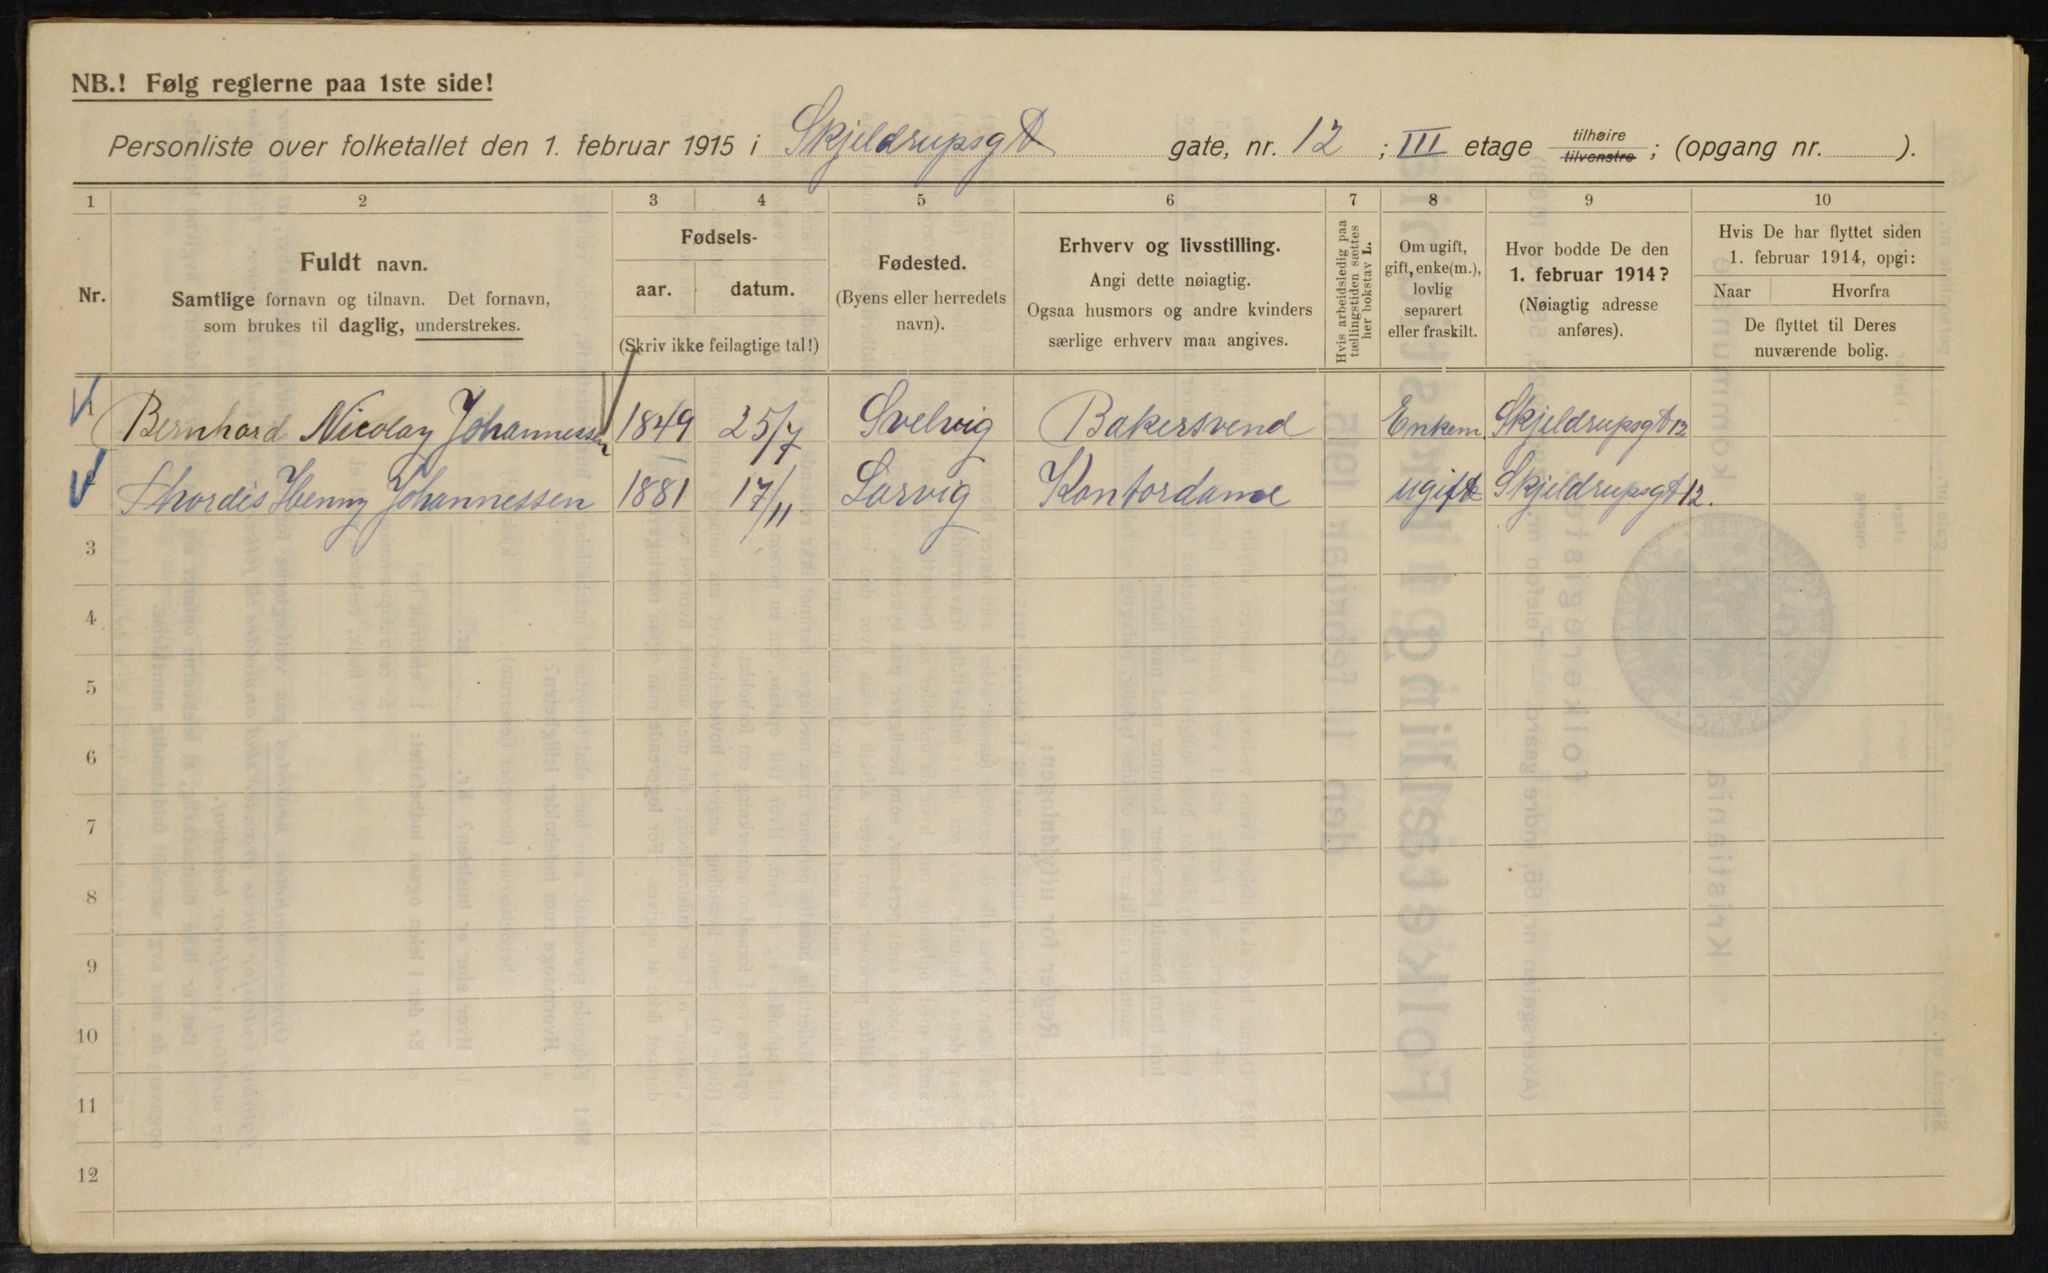 NB.! Følg reglerne paa 1ste side!
Personliste over folketallet den 1. februar 1915 i Skjeldrupsgt gate, nr. 12 ; III etage tilhøire tilvenstre ; (opgang nr. ).
1 2 3 4 5 6 7 8 9 10
Nr.
Fuldt navn.
Samtlige fornavn og tilnavn. Det fornavn,
som brukes til daglig, understrekes.
Fødsels-
aar. datum.
(Skriv ikke feilagtige tal!)
Fødested.
(Byens eller herredets
navn).
Erhverv og livsstilling.
Angi dette nøiagtig.
Ogsaa husmors og andre kvinders
særlige erhverv maa angives.
Hvis arbeidsledig paa
tællingstiden sættes
her bokstav L.
Om ugift,
gift, enke(m.),
lovlig
separert
eller fraskilt.
Hvor bodde De den
1. februar 1914?
(Nøiagtig adresse
anføres).
Hvis De har flyttet siden
1. februar 1914, opgi:
Naar Hvorfra
De flyttet til Deres
nuværende bolig.
Bernhard Nicolay Johannessen 1849 25/7 Svelvig Bakersvend Enkem Skjeldrupsgt 12
Thordis Henny Johannessen 1881 17/11 Larvig Kontordame ugift Skjeldrupsgt 12.
3
4
5
6
7
8
9
10
11
12